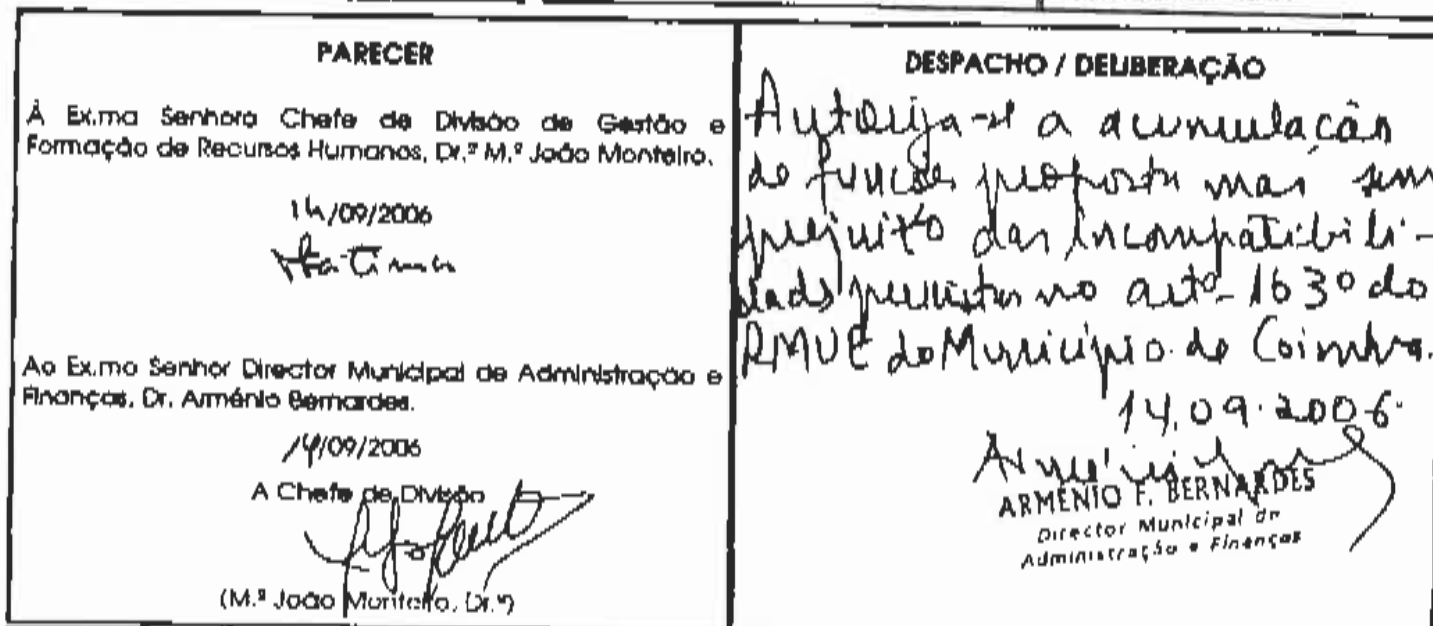 PARECER
À Ex.ma Senhora Chefe de Divisão de Gestão e
Formação de Recursos Humanos, Dr.ª M.ª João Monteiro.
14/09/2006
Ao Ex.mo Senhor Director Municipal de Administração e
Finanças, Dr. Arménio Bernardes.
14/09/2006
A Chefe de Divisão
(M.ª João Monteiro, Dr.ª)
DESPACHO / DELIBERAÇÃO
Autoriza-se a acumulação
de funções proposta mas sem
prejuízo das incompatibili-
dades previstas no artº 163º do
RMUE do Município de Coimbra.
14.09.2006.
ARMÉNIO F. BERNARDES
Director Municipal de
Administração e Finanças